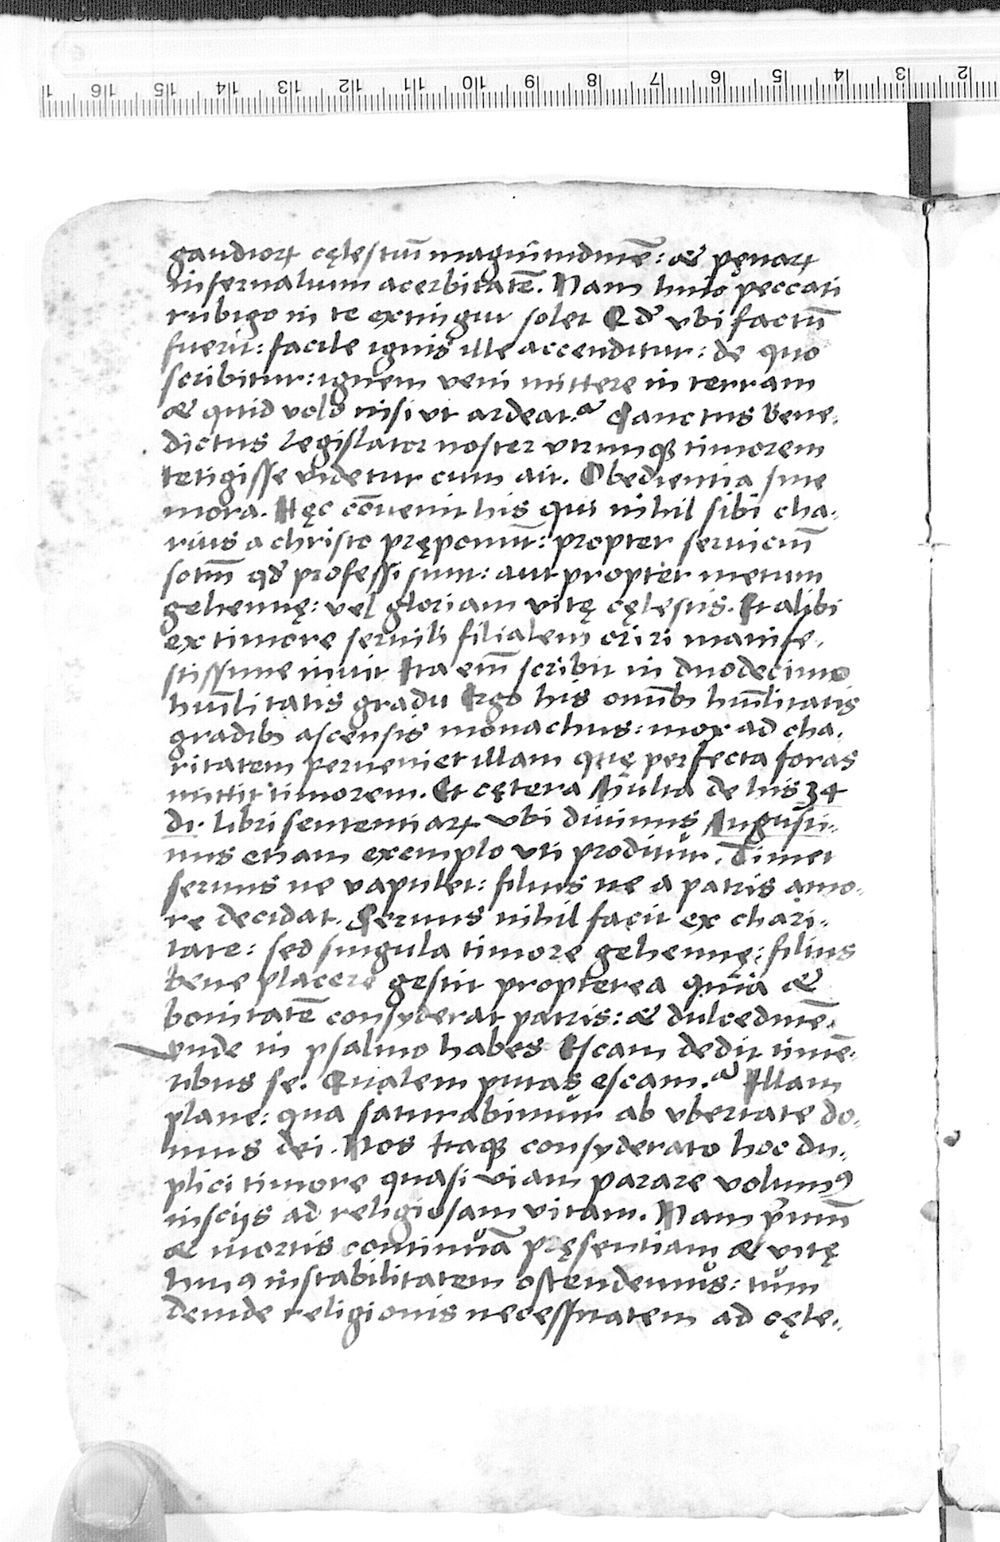 16 15 14 13 12 11 10 9 8 7 6 5 4 3 2
gaudiorꝝ cęlestiū magnitudinē: & pęnarꝝ
infernalium acerbitatē. Nam huiꝰ peccati
rubigo in te extingui solet Qđ ubi factū
fuerit: facile ignis ille accenditur: de quo
scribitur: ignem veni mittere in terram
& quid volo nisi ut ardeat? Sanctus Bene-
dictus legislator noster utrumqꝫ timorem
tetigisse videtur cum ait. Obedientia sine
mora. Hęc cōvenit his qui nihil sibi cha-
rius a christo pręponūt: propter servitiū
sctm̄ qđ professi sunt: aut propter metum
gehennę: vel gloriam vitę cęlestis. Et alibi
ex timore servili filialem oriri manife-
stissime innuit Ita em̄ scribit in duodecimo
hūilitatis gradu Ergo his omībꝫ hūilitatis
gradibꝫ ascensis monachus: mox ad cha-
ritatem perveniet illam quę perfecta foras
mittit timorem. Et cętera Multa de his 34
di. libri sententiarꝝ ubi divinus Augusti-
nus etiam exemplo uti proditur. Timet
servus ne vapulet: filius ne a patris amo-
re decidat. Servus nihil facit ex chari-
tate: sed singula timore gehennę: filius
bene placere gestit propterea quia &
bonitatē consyderat patris: & dulcedinē.
unde in psalmo habes Escam dedit timē-
tibus se. Qualem putas escam? Illam
plane: qua saturabimur ab ubertate do-
mus dei. Nos itaqꝫ consyderato hoc du-
plici timore quasi viam parare volumꝰ
insciis ad religiosam vitam. Nam p̄mū
& mortis continuā pręsentiam & vitę
huiꝰ instabilitatem ostendemus: tum
deinde religionis necessitatem ad cęle-